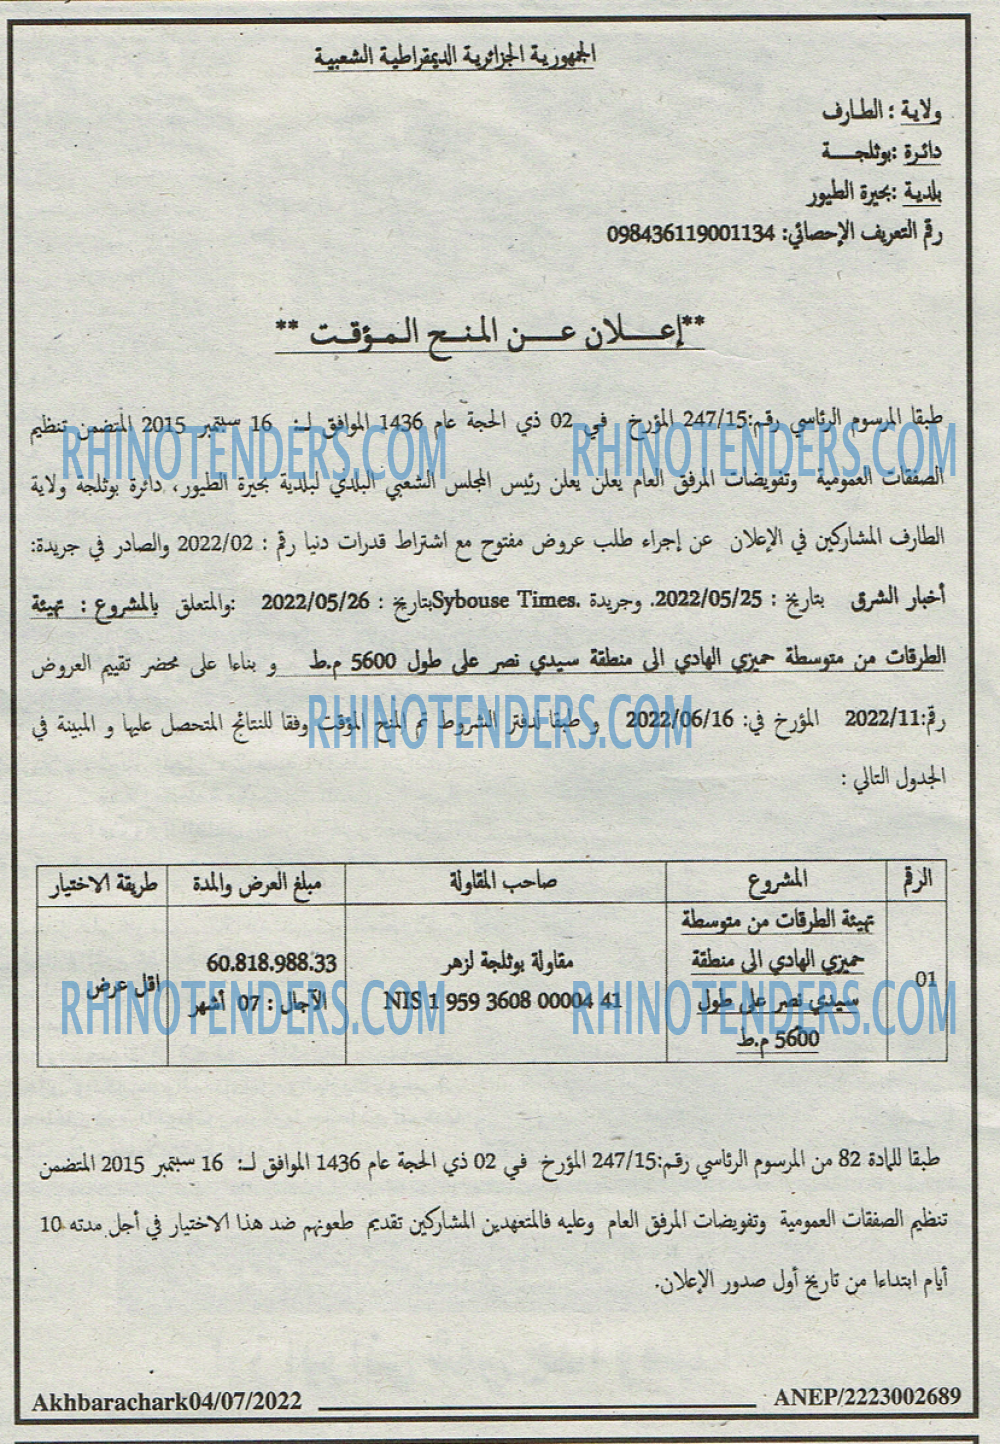 الجمهورية الجزائرية الديمقراطية الشعبية
ولاية : الطارف
دائرة :بوثلجـــة
بلدية :بحيرة الطيور
رقم التعريف الإحصائي: 098436119001134
**إعـــلان عـــن المنـــح المـؤقـت **
طبقا المرسوم الرئاسي رقم:247/15 المؤرخ في 02 ذي الحجة عام 1436 الموافق لـ: 16 سبتمبر 2015 المتضمن تنظيم
الصفقات العمومية وتفويضات المرفق العام يعلن يعلن رئيس المجلس الشعبي البلدي لبلدية بحيرة الطيور، دائرة بوثلجة ولاية
الطارف المشاركين في الإعلان عن إجراء طلب عروض مفتوح مع اشتراط قدرات دنيا رقم : 2022/02 والصادر في جريدة:
أخبار الشرق بتاريخ : 2022/05/25. وجريدة .Sybouse Timesبتاريخ : 2022/05/26 :والمتعلق بالمشروع : تهيئة
الطرقات من متوسطة حميزي الهادي الى منطقة سيدي نصر على طول 5600 م.ط و بناءا على محضر تقييم العروض
رقم:2022/11 المؤرخ في: 2022/06/16 و طبقا لدفتر الشروط تم المنح المؤقت وفقا للنتائج المتحصل عليها و المبينة في
الجدول التالي :
الرقم المشروع صاحب المقاولة مبلغ العرض والمدة طريقة الاختيار
01 تهيئة الطرقات من متوسطة
حميزي الهادي الى منطقة
سيدي نصر على طول
5600 م.ط
مقاولة بوثلجة لزهر
NIS 1 959 3608 00004 41
60.818.988.33
الآجال : 07 أشهر
اقل عرض
طبقا للمادة 82 من المرسوم الرئاسي رقم:247/15 المؤرخ في 02 ذي الحجة عام 1436 الموافق لـ: 16 سبتمبر 2015 المتضمن
تنظيم الصفقات العمومية وتفويضات المرفق العام وعليه فالمتعهدين المشاركين تقديم طعونهم ضد هذا الاختيار في أجل مدته 10
أيام ابتداءا من تاريخ أول صدور الإعلان.
Akhbarachark04/07/2022 ANEP/2223002689
RHINOTENDERS.COM RHINOTENDERS.COM
RHINOTENDERS.COM
RHINOTENDERS.COM RHINOTENDERS.COM